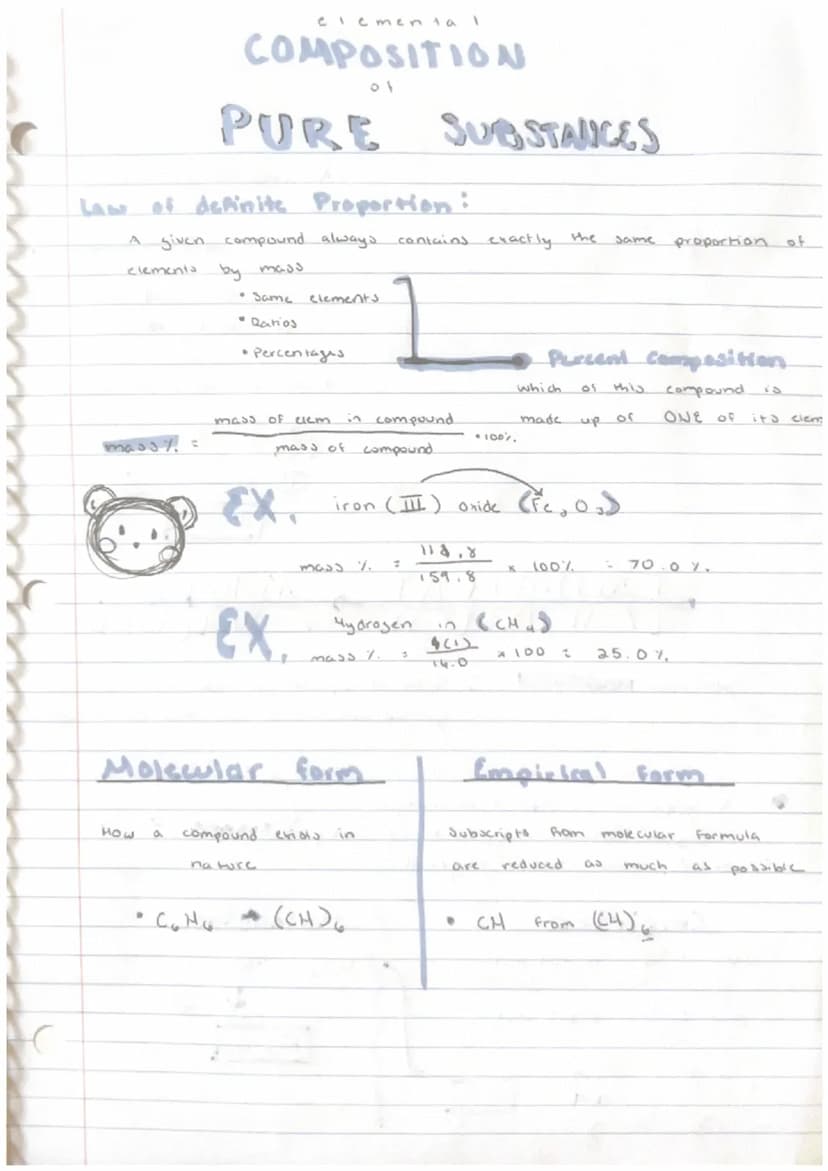 elemental
COMPOSITION
of
PURE SUBSTANCES
Law of definite Proportion:
A given compound always contains exactly the same proportion of
elements by mass
• Same elements
• Ratios
• Percentages
Percent Composition
which of this compound is
made up of ONE of its elem
mass % = mass of elem in compound / mass of compound • 100%
EX. iron (III) oxide (Fe₂O₃)
mass % = 111.8 / 159.8 x 100% = 70.0 %.
EX. Hydrogen in (CH₄)
mass % = 4(1) / 16.0 x 100 = 25.0 %.
Molecular form
How a compound exists in
nature
• C₆H₆ → (CH)₆
Empirical Form
Subscripts from molecular formula
are reduced as much as possible
• CH from (CH)₆